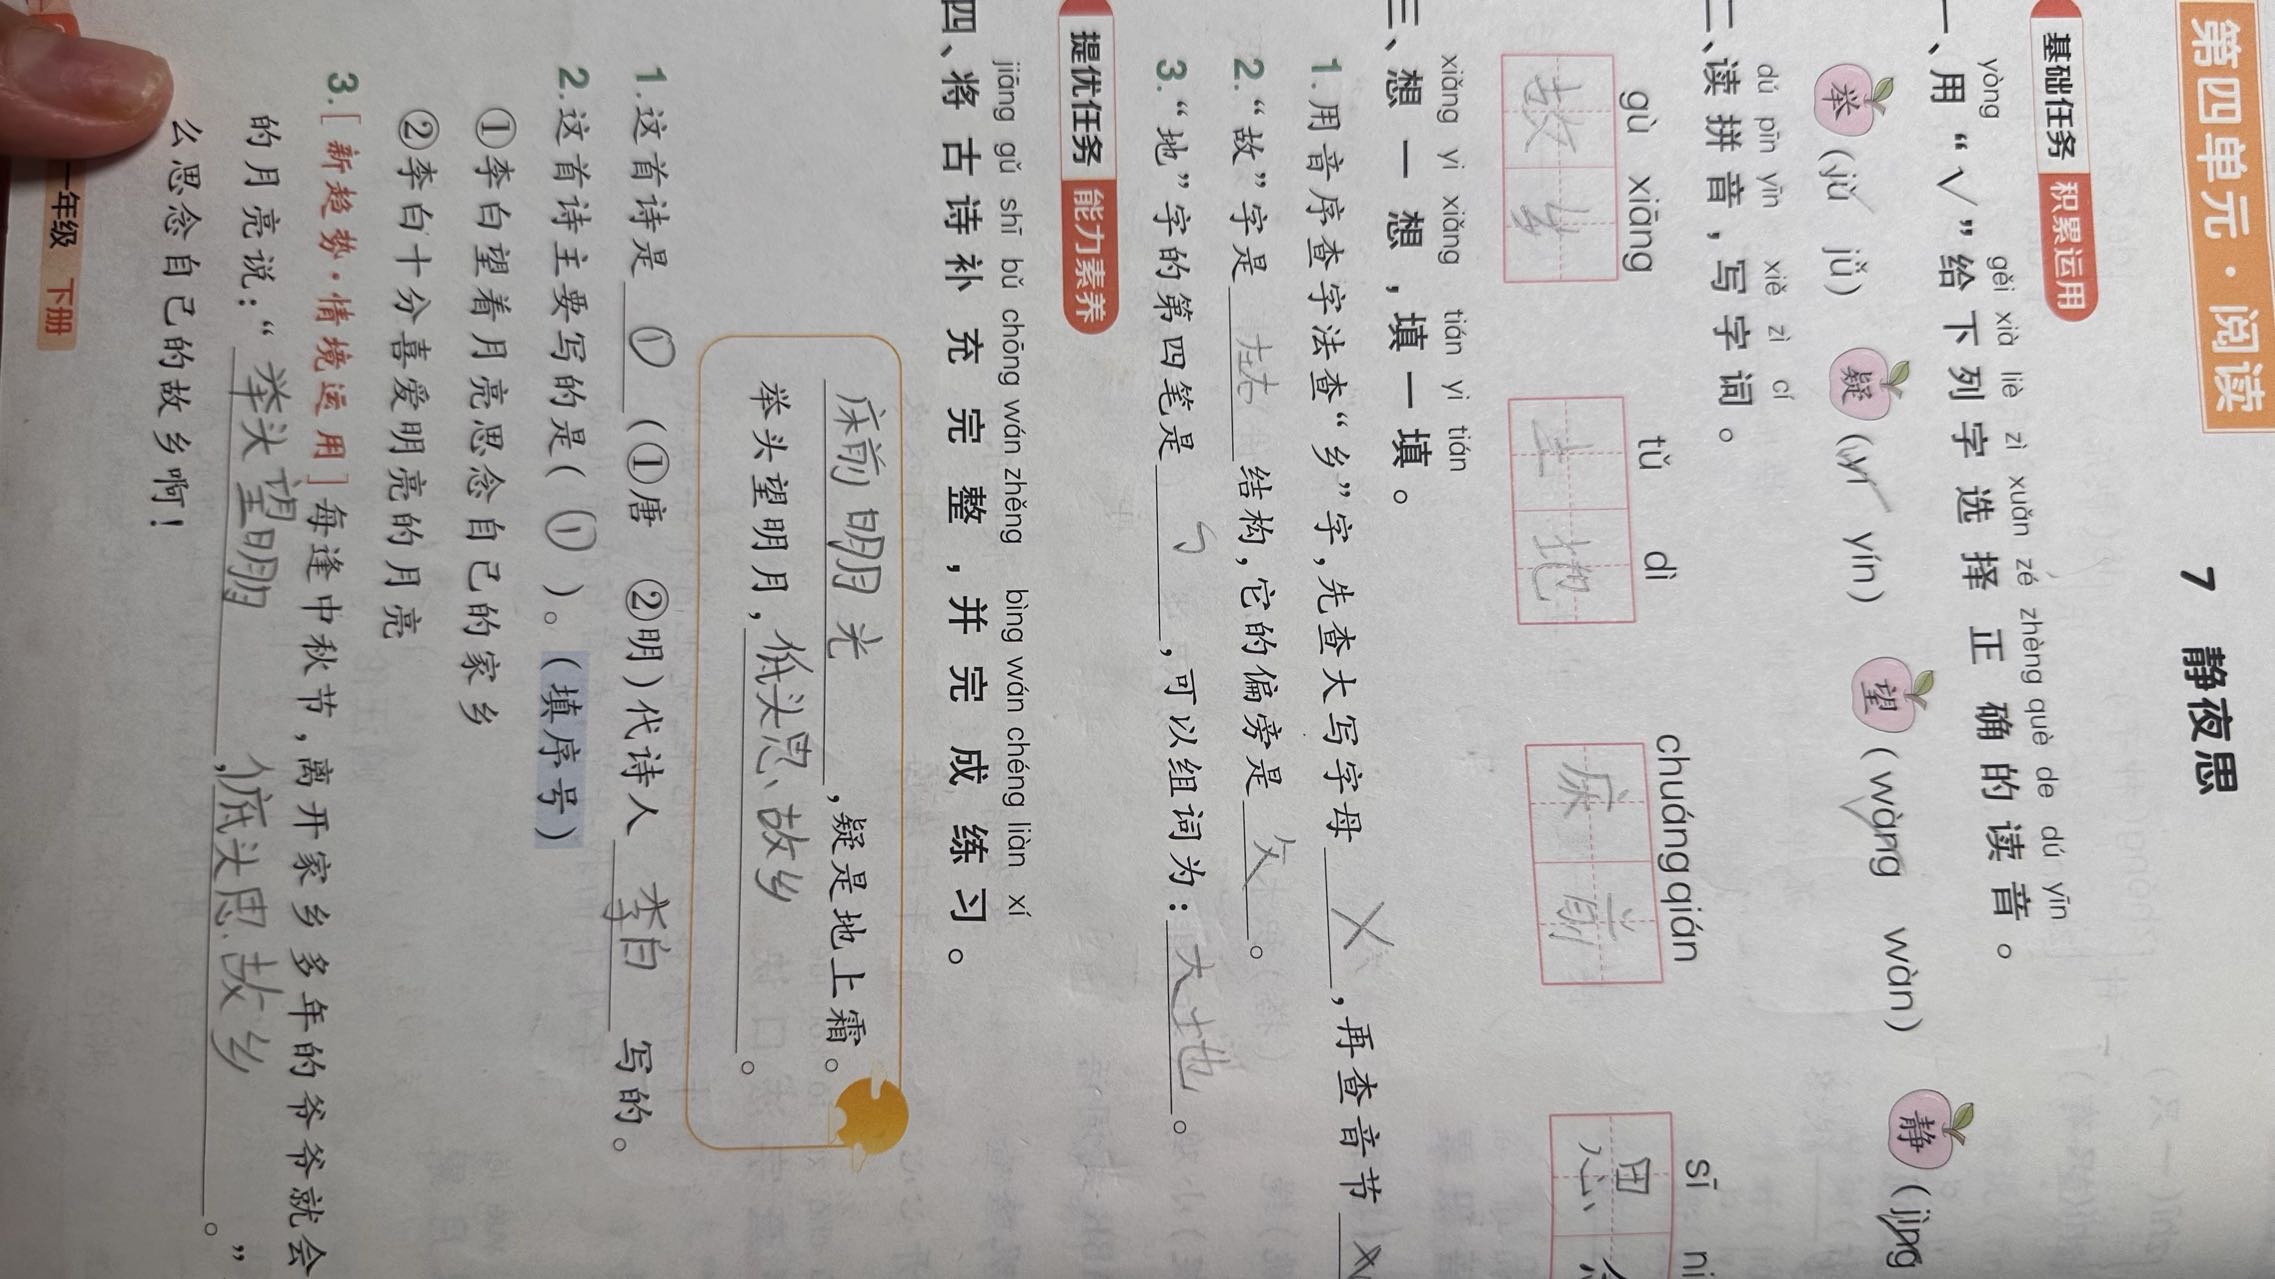 第四单元·阅读
7 静夜思
基础任务 积累运用
yòng gěi xià liè zì xuǎn zé zhèng què de dú yīn
一、用“√”给下列字选择正确的读音。
举(jǔ√ jǚ) 疑(yí√ yín) 望(wàng√ wàn) 静(jìng
dú pīn yīn xiě zì cí
二、读拼音，写字词。
gù xiāng tǔ dì chuáng qián sī ni
故乡 土地 床前 思
xiǎng yi xiǎng tián yi tián
三、想一想，填一填。
1.用音序查字法查“乡”字,先查大写字母X,再查音节x
2.“故”字是 结构,它的偏旁是攵。
3.“地”字的第四笔是㇆,可以组词为:大地。
提优任务 能力素养
jiāng gǔ shī bǔ chōng wán zhěng bìng wán chéng liàn xí
四、将古诗补充完整，并完成练习。
床前明月光,疑是地上霜。
举头望明月,低头思故乡。
1.这首诗是①(①唐 ②明)代诗人李白写的。
2.这首诗主要写的是(①)。(填序号)
①李白望着月亮思念自己的家乡
②李白十分喜爱明亮的月亮
3.[新趋势·情境运用]每逢中秋节,离开家乡多年的爷爷就会
的月亮说:“举头望明月,低头思故乡。”
么思念自己的故乡啊!
一年级 下册